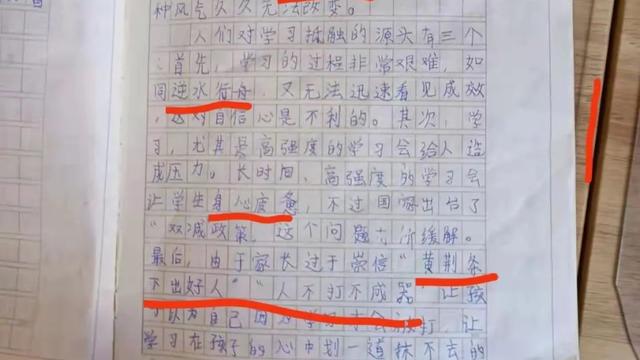 种风气久久无法改变。
人们对学习抵触的源头有三个
：首先，学习的过程非常艰难，如
同逆水行舟，又无法迅速看见成效
，这对自信心是不利的。其次，学
习，尤其是高强度的学习会给人造
成压力。长时间、高强度的学习会
让学生身心疲惫，不过国家出台了
“双减政策，这个问题有所缓解。
最后，由于家长过于崇信“黄荆条
下出好人”“人不打不成器”让孩
子以为自己因为学习才会被打，让
学习在孩子的心中划一道抹不去的